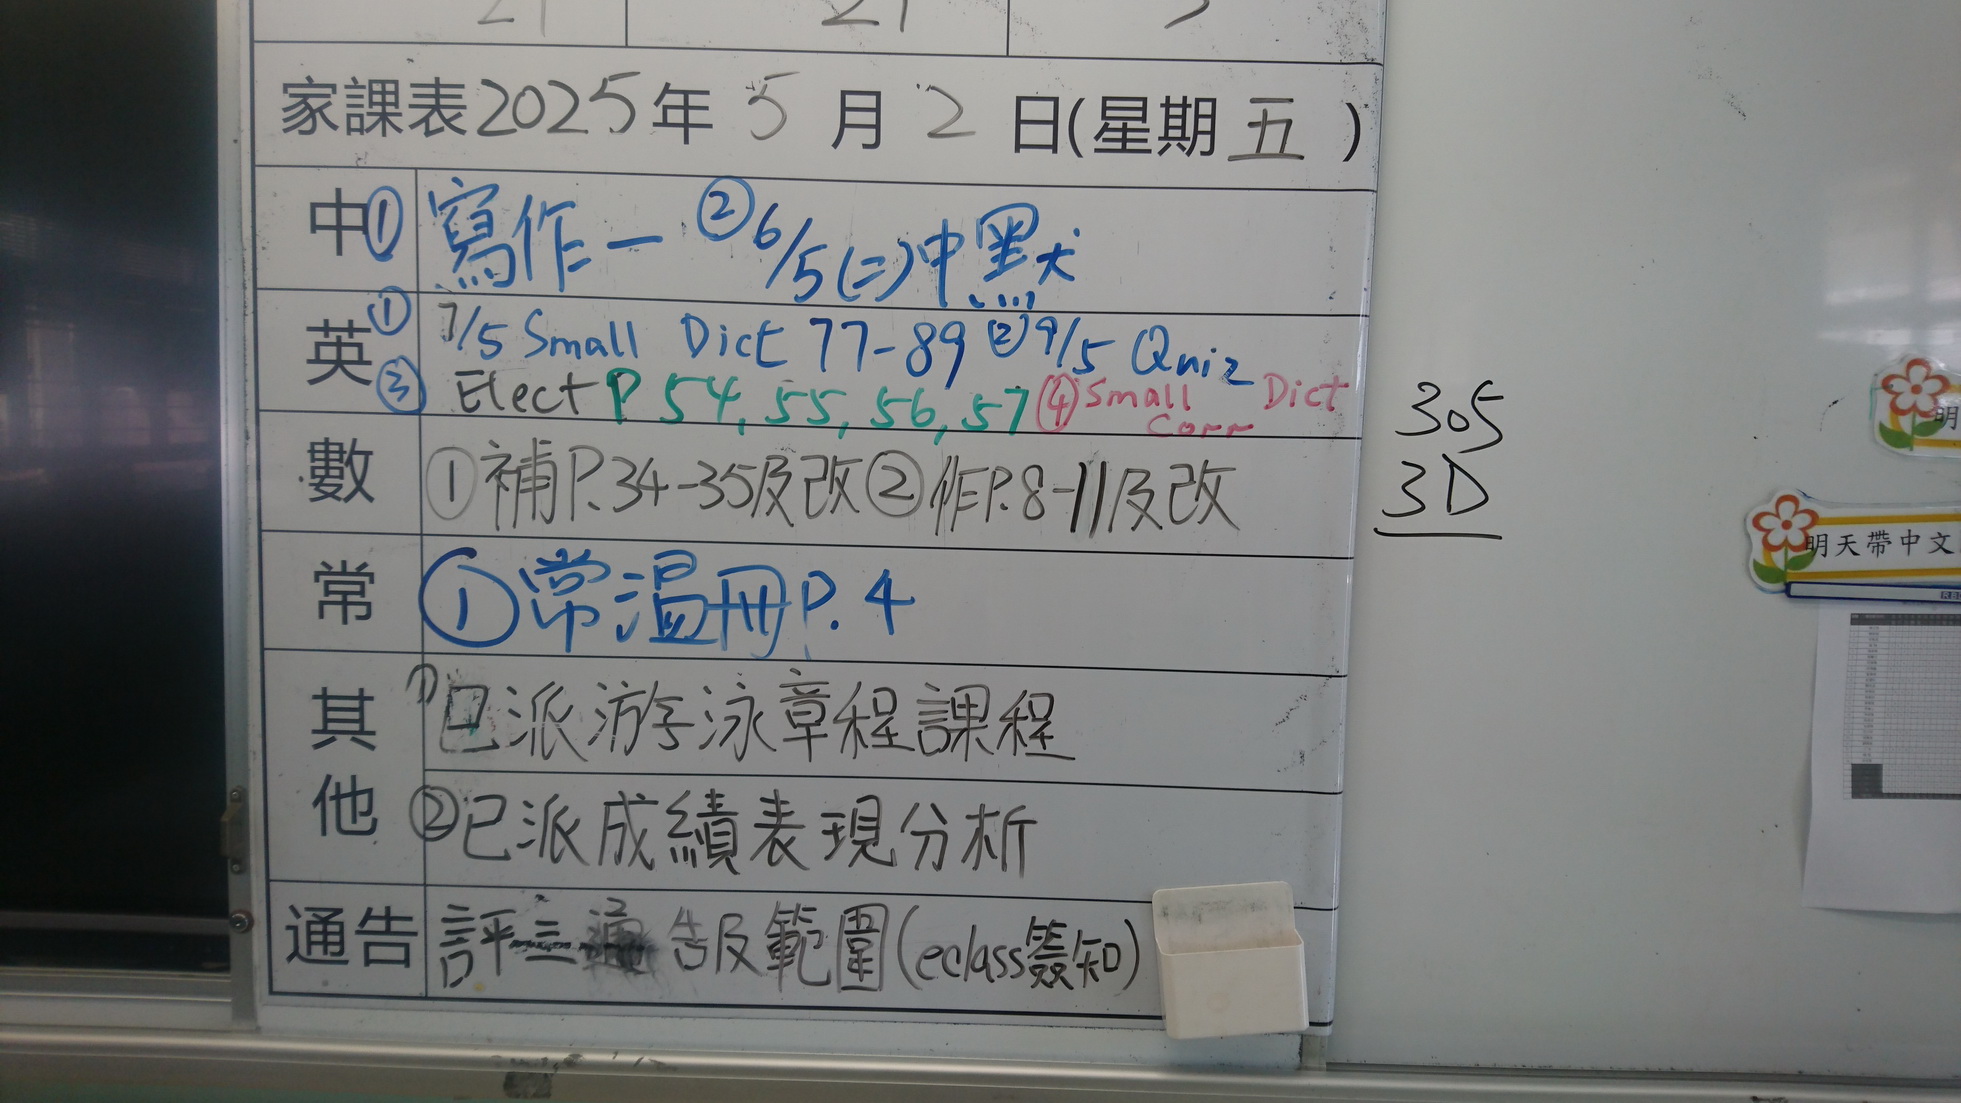 家課表2025年5月2日(星期五)
中①寫作一 ②6/5(二)中默
英①7/5 Small Dict 77-89 ②9/5 Quiz
③Elect P 54, 55, 56, 57 ④Small Dict Corr
數①補P.34-35及改②作P.8-11及改
常①常溫冊P.4
其他①已派游泳章程課程
②已派成績表現分析
通告 評三通告及範圍(eclass簽知)
305
3D
明
明天帶中文